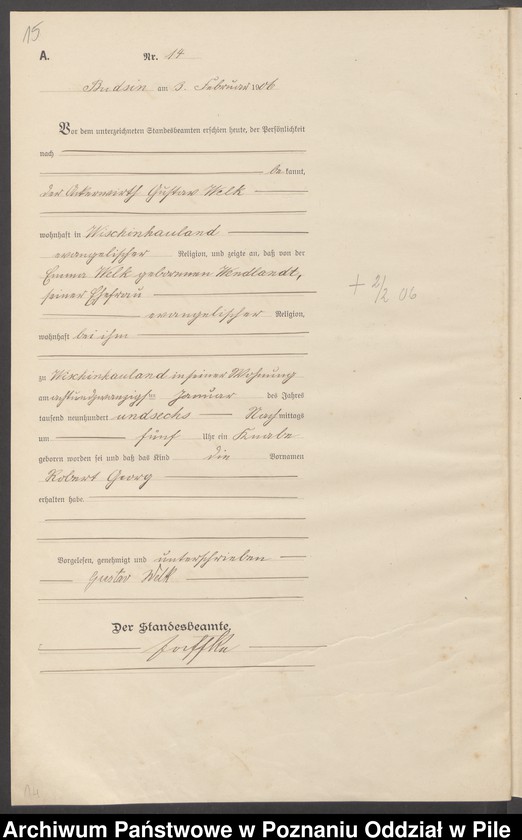 15
A.
Nr. 14
Budsin am 3. Februar 1906
Vor dem unterzeichneten Standesbeamten erschien heute, der Persönlichkeit
nach
be kannt,
der Ackerwirth Gustav Welk
wohnhaft in Wischinhauland
evangelischer Religion, und zeigte an, daß von der
Emma Welk geborenen Wendlandt,
seiner Ehefrau
evangelischer Religion,
wohnhaft bei ihm
zu Wischinhauland in seiner Wohnung
am achtundzwanzigsten Januar des Jahres
tausend neunhundert und sechs Nachmittags
um fünf Uhr ein Knabe
geboren worden sei und daß das Kind die Vornamen
Robert Georg
erhalten habe.
+ 2/2 06
Vorgelesen, genehmigt und unterschrieben
Gustav Welk
Der Standesbeamte.
14
Archiwum Państwowe w Poznaniu Oddział w Pile